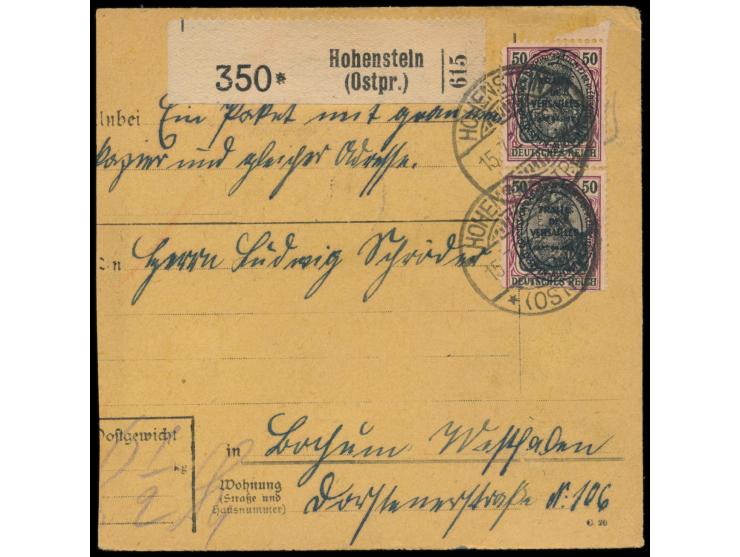 Hohenstein
(Ostpr.)
350*
615
50 50
TRAITÉ
DE
VERSAILLES
DEUTSCHES REICH
50 50
TRAITÉ
DE
VERSAILLES
DEUTSCHES REICH
HOHENS
15.
HOHENS
15
* (OST
Inbei Ein Paket mit grauem
Papier und gleicher Adresse.
An Herrn Ludwig Schröder
Postgewicht
in Bochum Westfalen
Wohnung
(Straße und
Hausnummer)
Dorstenerstraße N: 106
C. 20